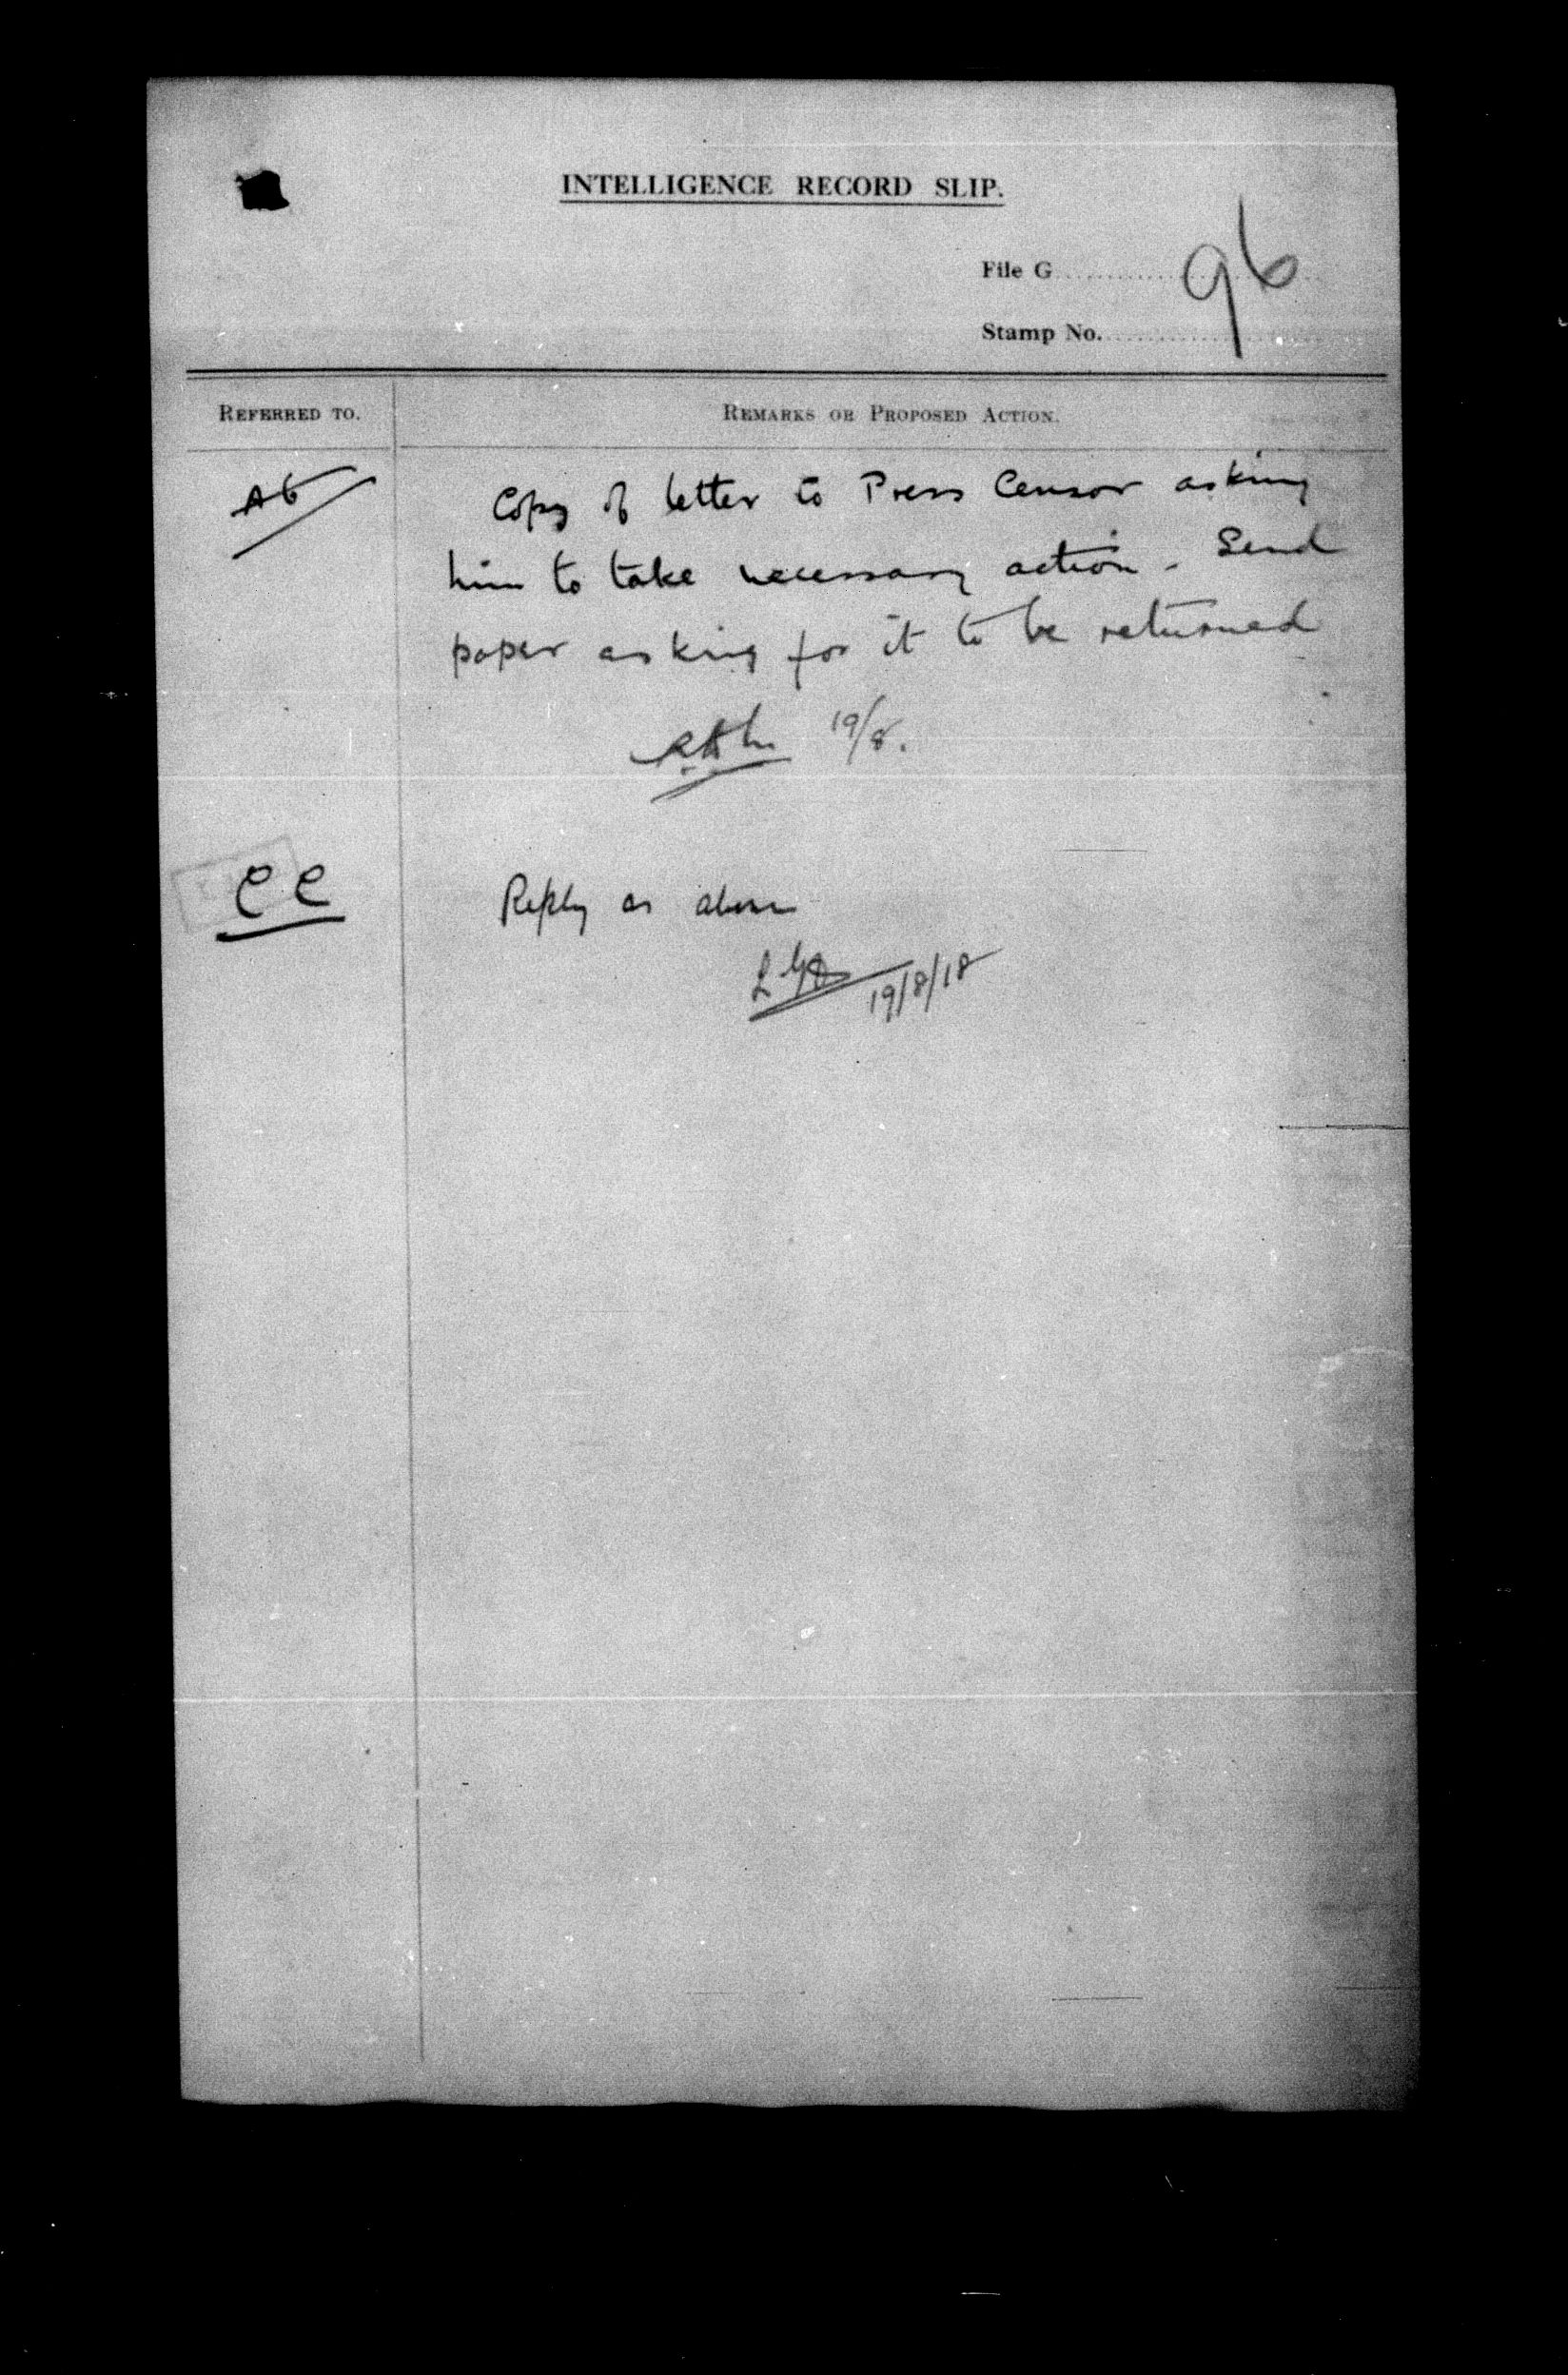 INTELLIGENCE RECORD SLIP.
File G 96
Stamp No.
REFERRED TO.
REMARKS OR PROPOSED ACTION.
Copy of letter to Press Censor asking
him to take necessary action - Send
paper asking for it to be returned
19/8.
CC
Reply as above
19/8/18